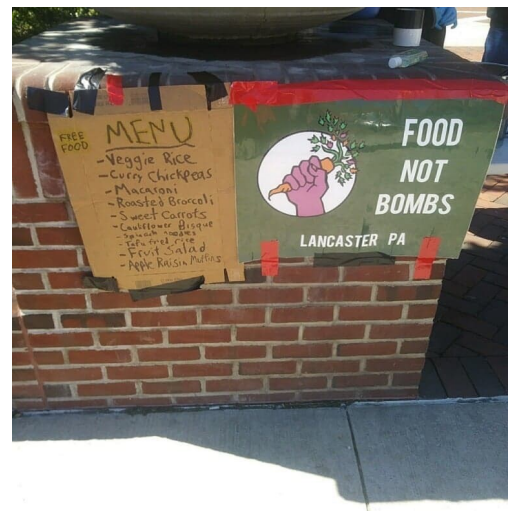 FREE
FOOD
MENU
- Veggie Rice
- Curry Chickpeas
- Macaroni
- Roasted Broccoli
- Sweet Carrots
- Cauliflower Bisque
- Spinach noodles
- Tofu fried rice
- Fruit Salad
- Apple Raisin Muffins
FOOD
NOT
BOMBS
LANCASTER PA